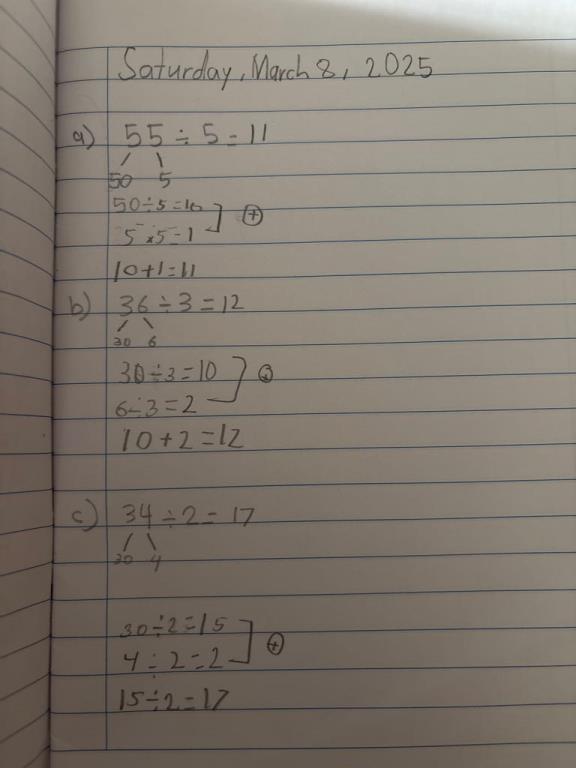 Saturday, March 8, 2025
a) 55 ÷ 5 = 11
50 5
50÷5=10 ] +
5 × 5 = 1
10+1=11
b) 36 ÷ 3 = 12
30 6
30÷3=10 ] +
6÷3=2
10+2=12
c) 34 ÷ 2 = 17
30 4
30÷2=15 ] +
4÷2=2
15÷2=17